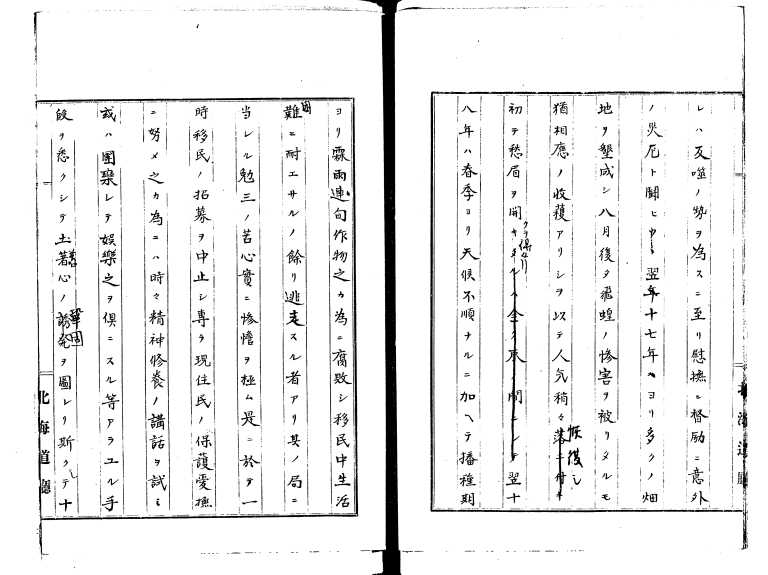 レハ反噬ノ勢ヲ為スニ至リ慰撫ニ督励ニ意外
ノ災厄ト闘ヒ翌年十七年ヨリ多クノ畑
地ヲ墾成シ八月後タ飛蝗ノ惨害ヲ被リタルモ
猶相應ノ收穫アリシヲ以テ人気稍々恢復シ落ニ付キ
初テ愁眉ヲ開クヲ得タリキタルハ全ク此ノ間ニシテ翌十
八年ハ春季ヨリ天候不順ナルニ加ヘテ播種期
北海道廳
ヨリ霖雨連旬作物之カ為ニ腐敗シ移民中生活
困難ニ耐エサルノ餘リ逃走スル者アリ其ノ局ニ
当レル勉三ノ苦心實ニ惨憺ヲ極ム是ニ於テ一
時移民ノ招募ヲ中止シ専ラ現住民ノ保護愛撫
ニ努メ之カ為ニハ時々精神修養ノ講話ヲ試ミ
或ハ團欒シテ娯樂之ヲ倶ニスル等アラユル手
段ヲ悉クシテ土著心ノ鞏固誘発ヲ圖レリ斯クテ十
北海道廳